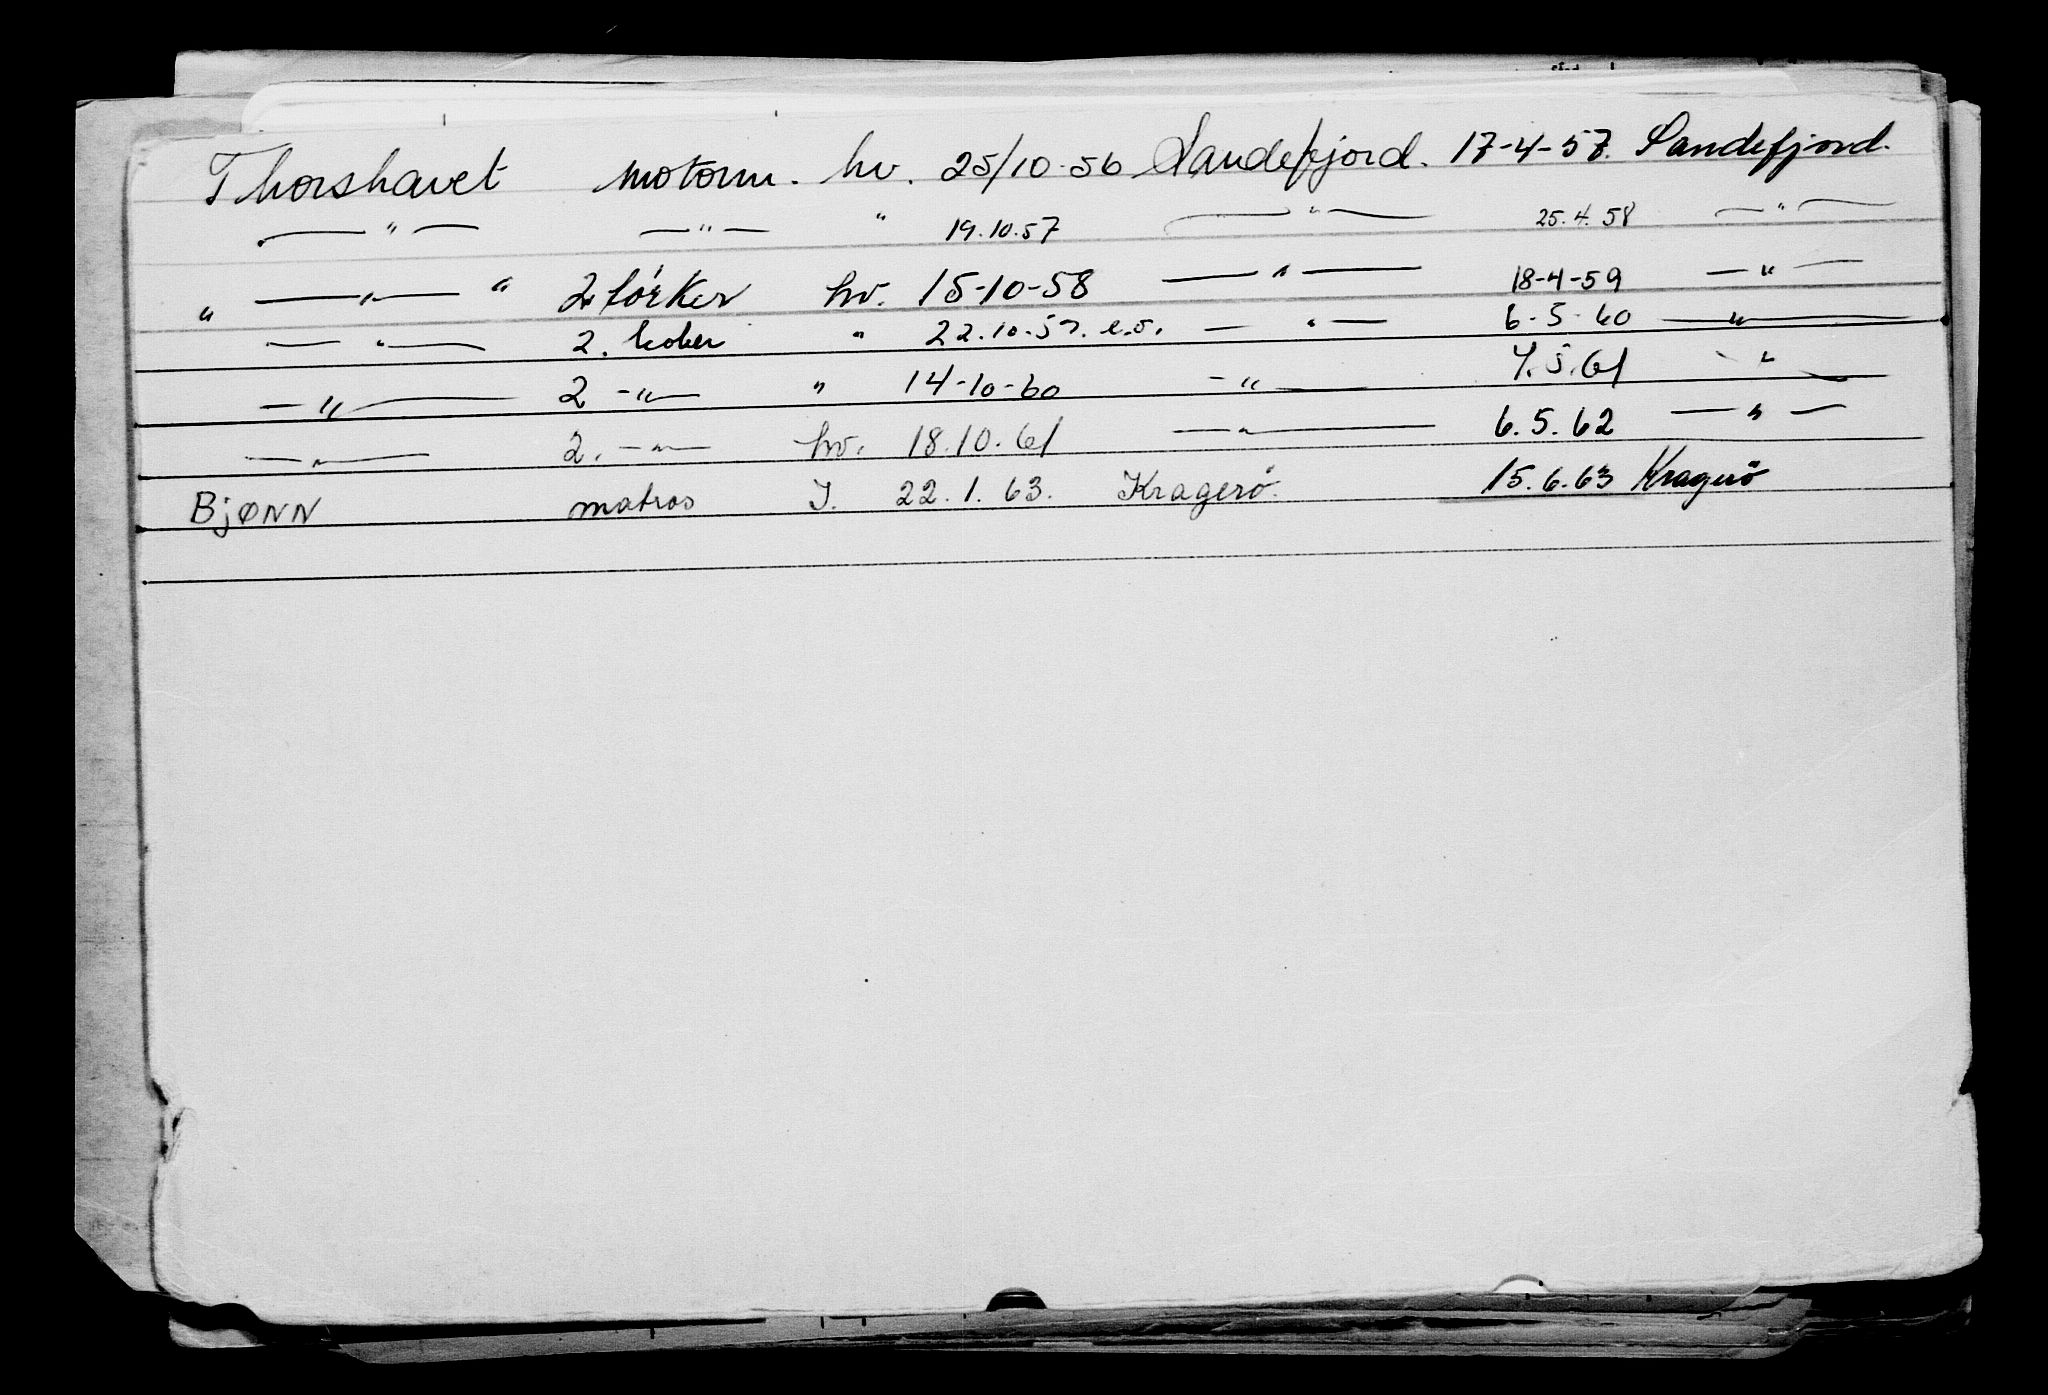 Thorshavet motorm. hv. 25/10-56 Sandefjord. 17-4-57. Sandefjord.
— " — — " — " 19.10.57 — " — 25.4.58 — " —
" — " — " 2. tørker hv. 15-10-58 — " — 18-4-59 — " —
— " — 2. koker " 22.10.59. — " — 6-5-60 — " —
— " — 2 — " — " 14-10-60 — " — 7.5.61 — " —
— " — 2. — " — hv. 18.10.61 — " — 6.5.62 — " —
BjØNN matros I. 22.1.63. Kragerö. 15.6.63 Kragerö